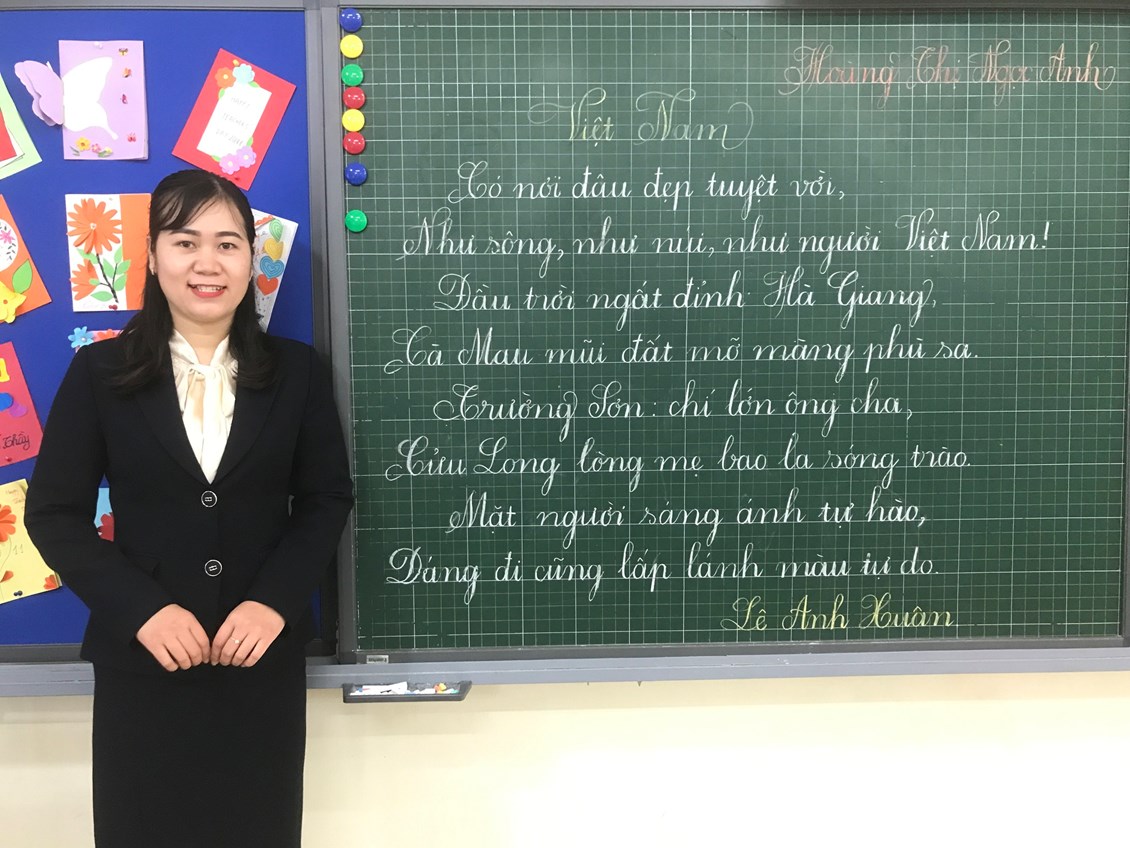 Hoàng Thị Ngọc Ánh
Việt Nam
Có nơi đâu đẹp tuyệt vời,
Như sông, như núi, như người Việt Nam!
Đầu trời ngất đỉnh Hà Giang,
Cà Mau mũi đất mỡ màng phù sa.
Trường Sơn: chí lớn ông cha,
Cửu Long lòng mẹ bao la sóng trào.
Mặt người sáng ánh tự hào,
Dáng đi cũng lấp lánh màu tự do.
Lê Anh Xuân
HAPPY
TEACHER'S
thầy